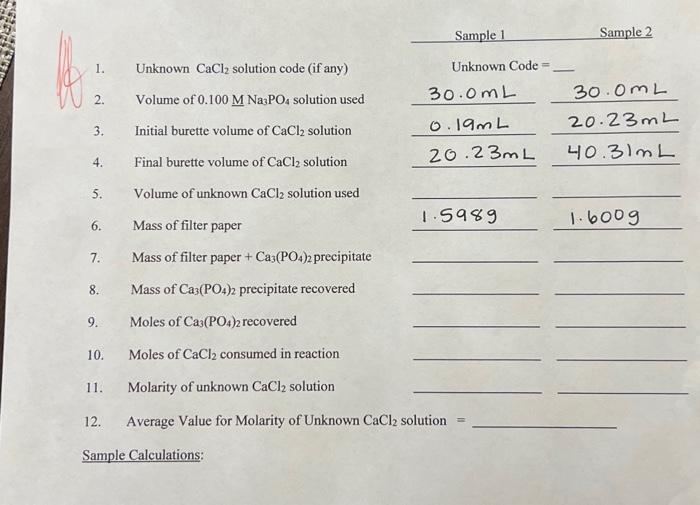 Sample 1 Sample 2
1. Unknown CaCl₂ solution code (if any) Unknown Code = __
2. Volume of 0.100 M Na₃PO₄ solution used 30.0mL 30.0mL
3. Initial burette volume of CaCl₂ solution 0.19mL 20.23mL
4. Final burette volume of CaCl₂ solution 20.23mL 40.31mL
5. Volume of unknown CaCl₂ solution used
6. Mass of filter paper 1.598g 1.600g
7. Mass of filter paper + Ca₃(PO₄)₂ precipitate
8. Mass of Ca₃(PO₄)₂ precipitate recovered
9. Moles of Ca₃(PO₄)₂ recovered
10. Moles of CaCl₂ consumed in reaction
11. Molarity of unknown CaCl₂ solution
12. Average Value for Molarity of Unknown CaCl₂ solution = ____
Sample Calculations: